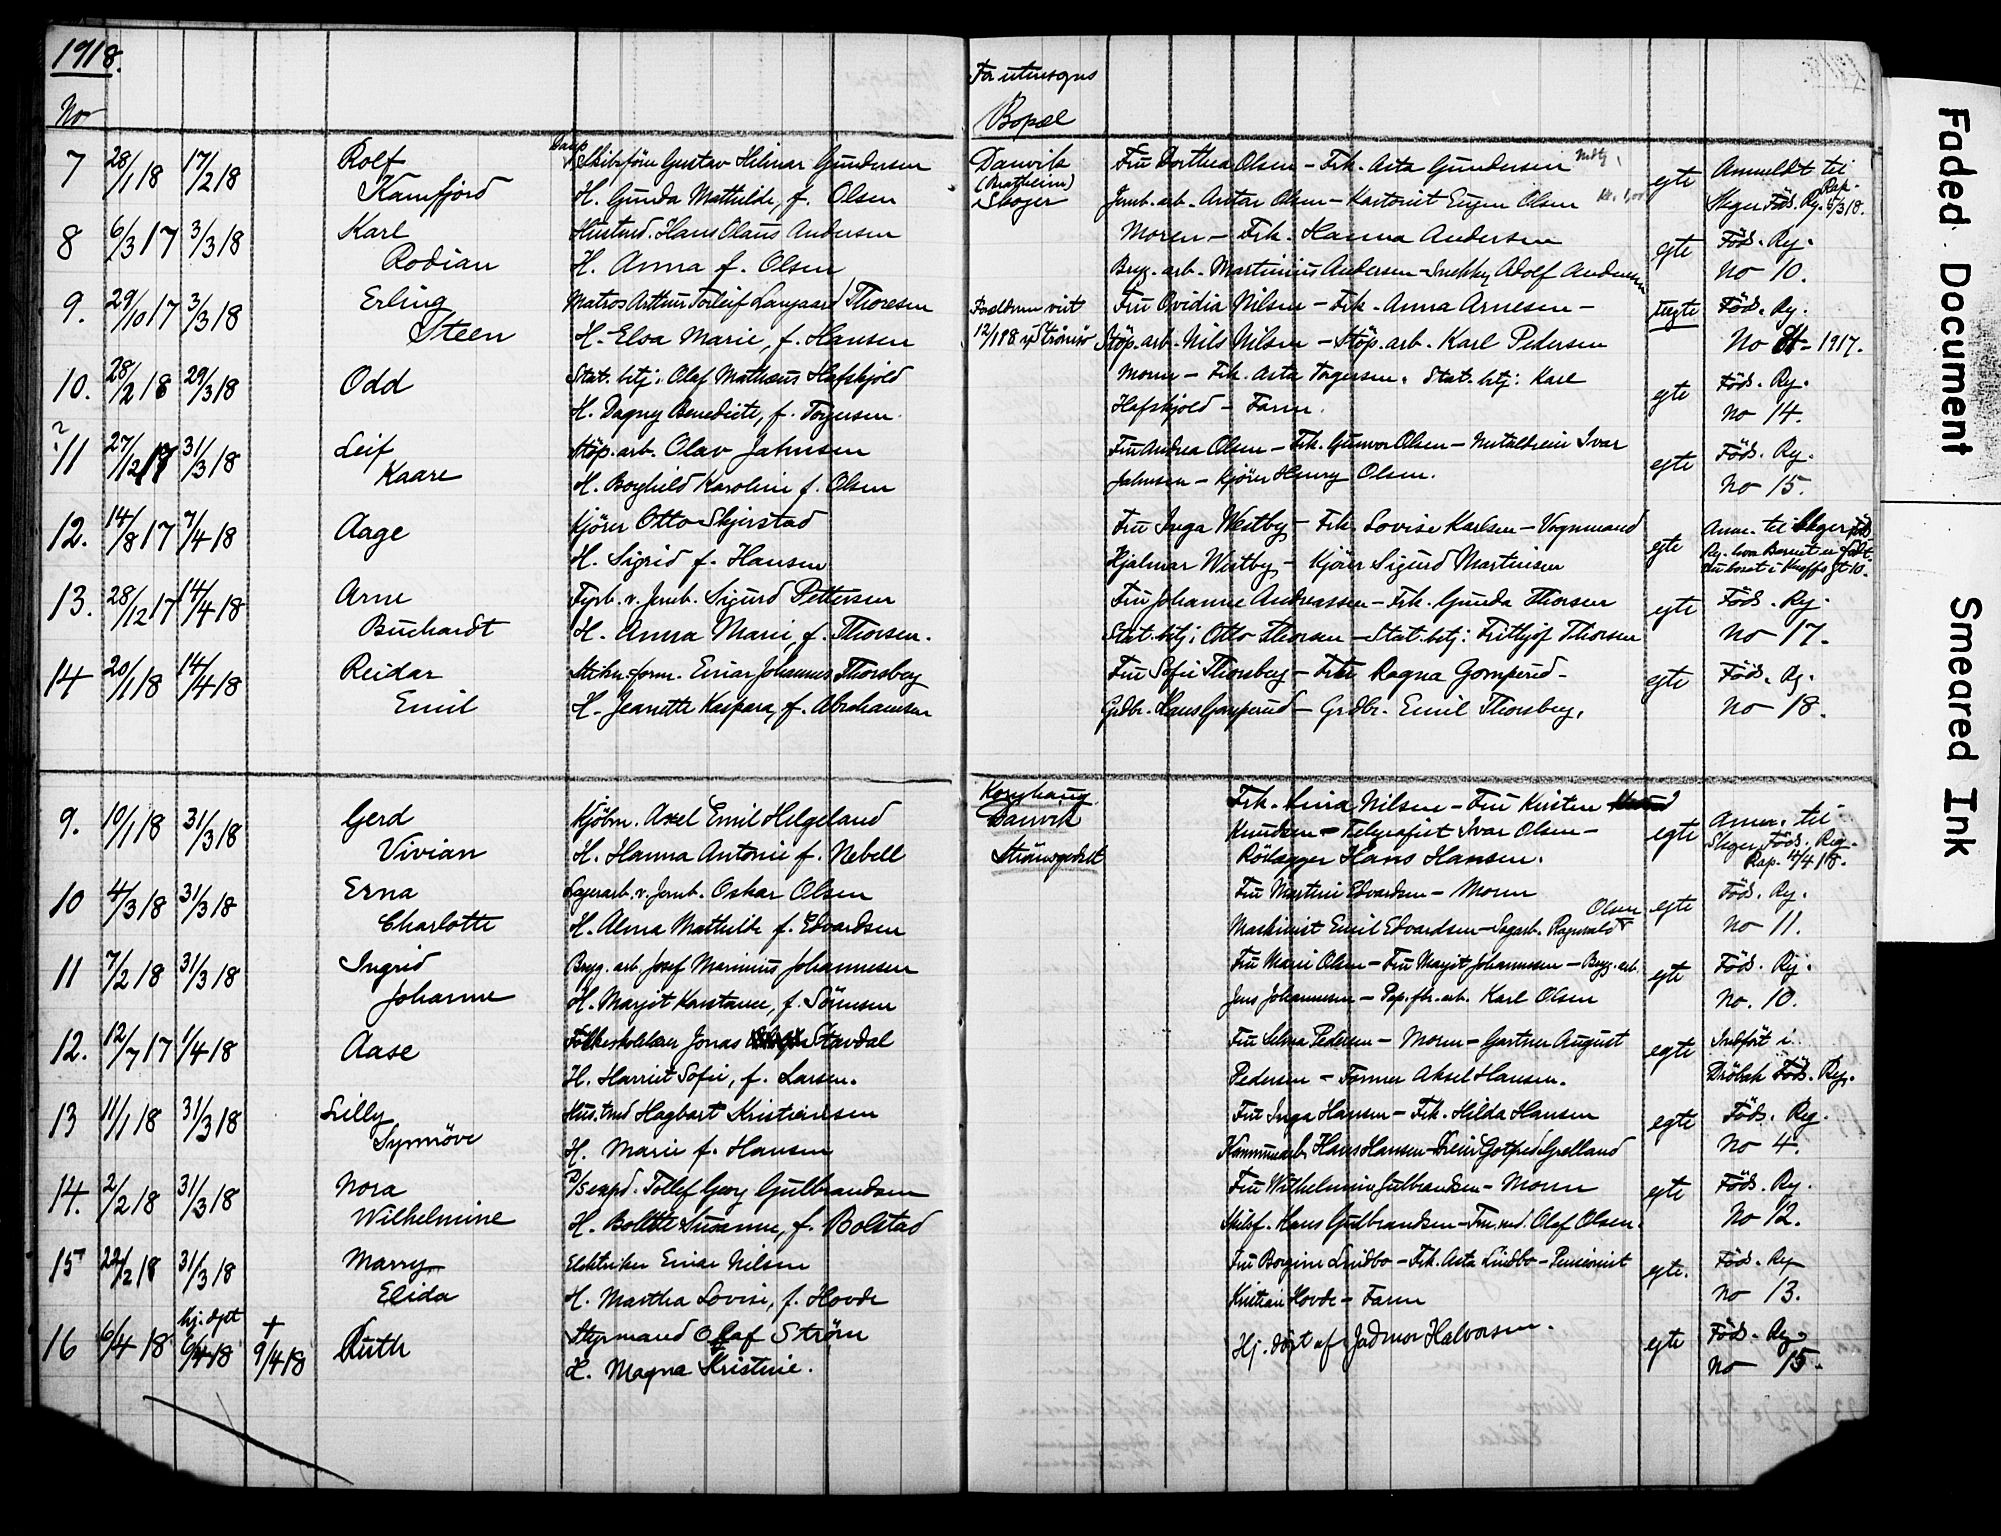 1918.
No
For utensogns
Bopæl
7 28/1 18 17/2 18 Rolf Kamfjord
Damp Skibsfører Gustav Hilmar Gundersen
H. Gunda Mathilde, f. Olsen
Danvik
Skoger
Fru Dorthea Olsen - Frk. Asta Gundersen
Jernb. arb. Anton Olsen - Kartonist Eugen Olsen
egte
Anmeldt til
Skger Föds. Rg. Rap. 5/3 18.
8 6/3 17 3/3 18 Karl Rodian
Hustmd. Hans Olaus Andersen
H. Anna f. Olsen
Moren - Frk. Hanna Andersen
Bryg. arb. Martinius Andersen - Snekker Adolf Andersen
egte
Föds. Rg.
No 10.
9. 29/10 17 3/3 18 Erling Steen
Matros Arthur Torleif Langaard Thoresen
H. Elsa Marie, f. Hansen
Forældrene viet
12/1 18 i Strömsö
Fru Ovidia Nilsen - Frk. Anna Arnesen -
Støp. arb. Nils Nilsen - Støp. arb. Karl Pedersen
uegte
Föds. Rg.
No - 1917.
10. 28/2 18 29/3 18 Odd
Stat. btj. Olaf Mathæus Hafskjold
H. Dagny Benedicte, f. Torgersen.
Moren - Frk. Asta Torgersen. Stat. btj: Karl
Hafskjold - Faren.
egte
Föds. Rg.
No 14.
? 11 27/12 17 31/3 18 Leif Kaare
Støp. arb. Olav Jahnsen
H. Borghild Karoline f. Olsen
Fru Andrea Olsen - Frk. Gunvor Olsen - Metaldreier Ivar
Jahnsen - Kjører Henry Olsen.
egte
Föds. Rg.
No 15.
12. 14/8 17 7/4 18 Aage
Kjører Otto Skjerstad
H. Sigrid f. Hansen
Fru Inga Westby - Frk. Lovise Karlsen - Vognmand
Hjalmar Westby - Kjører Sigurd Martinsen
egte
Anm. til Skger Föds.
Rg. hvor Barnet er født.
13. 28/12 17 14/4 18 Arne Buchardt
Fyrb. v. Jernb. Sigurd Pettersen
H. Anna Marie, f. Thorsen.
Fru Johanne Andreassen - Frk. Gunda Thorsen
Stat. btj: Otto Thorsen - Stat. btj: Frithjof Thorsen
egte
Föds. Rg.
No 17.
14 20/1 18 14/4 18 Reidar Emil
Einar Johannes Thorsberg
H. Jeanette Kaspara, f. Abrahamsen
Fru Sofie Thorsberg - Frk Ragna Gomperud -
Grdbr. Hans Gomperud - Grdbr. Emil Thorsberg.
egte
Föds. Rg.
No 18.
9. 10/1 18 31/3 18 Gerd Vivian
Kjöbm. Axel Emil Helgeland
H. Hanna Antonie f. Nebell
Danvik
Strömsgodset
Frk. Nilsen - Fru Kirsten
Knudsen - Telegrafist Ivar Olsen -
Rörlægger Hans Hansen.
egte
Anm. til
Skger Föds. Rg.
Rap. 12/4 18.
10 4/3 18 31/3 18 Erna Charlotte
Lagerarb. v. Jernb. Oskar Olsen
H. Alma Mathilde f. Edvardsen
Fru Martine Edvardsen - Moren
Maskinist Emil Edvardsen - Sagarb. Ragnvald Olsen
egte
Föds. Rg.
No 11.
11 7/2 18 31/3 18 Ingrid Johanne
Bryg. arb. Josef Marinius Johannesen
H. Margit Konstanse, f. Sörensen
Fru Marie Olsen - Fru Margit Johannesen - Bryg. arb.
Jens Johannesen - Pap. fbr. arb. Karl Olsen
egte
Föds. Rg.
No. 10.
12. 12/7 17 1/4 18 Aase
Folkeskolelærer Jonas Stavdal
H. Harriet Sofie, f. Larsen.
Fru Selma Pedersen - Moren - Gartner August
Pedersen - Former Aksel Hansen.
egte
Indført i
Dröbak Föds. Rg.
13 11/1 18 31/3 18 Lilly Synnöve
Hustmd Hagbart Kristiansen
H. Marie f. Hansen
Fru Inga Hansen - Frk. Hilda Hansen
Kommunearb. Hans Hansen - Dreier Gotfred Gjelland
egte
Föds. Rg.
No 4.
14. 2/2 18 31/3 18 Nora Wilhelmine
Tollef Georg Gulbrandsen
H. Bolette Susanne, f. Bolstad
Fru Wilhelmine Gulbrandsen - Moren
Skibsf. Hans Gulbrandsen - Olaf Olsen.
egte
Föds. Rg.
No 12.
15 22/2 18 31/3 18 Marry Elida
Elektriker Einar Nilsen
H. Martha Lovise, f. Hovde
Fru Borgine Lindbo - Frk. Asta Lindbo - Pensionist
Kristian Hovde - Faren
egte.
Föds. Rg
No 13.
16 6/4 18 hj. døpt 6/4 18 + 9/4 18 Ruth
Styrmand Olaf Ström
H. Magna Kristine.
Hj. døpt af Jordmor Halvorsen.
egte
Föds. Rg.
No 15.
Faded Document
Smeared Ink